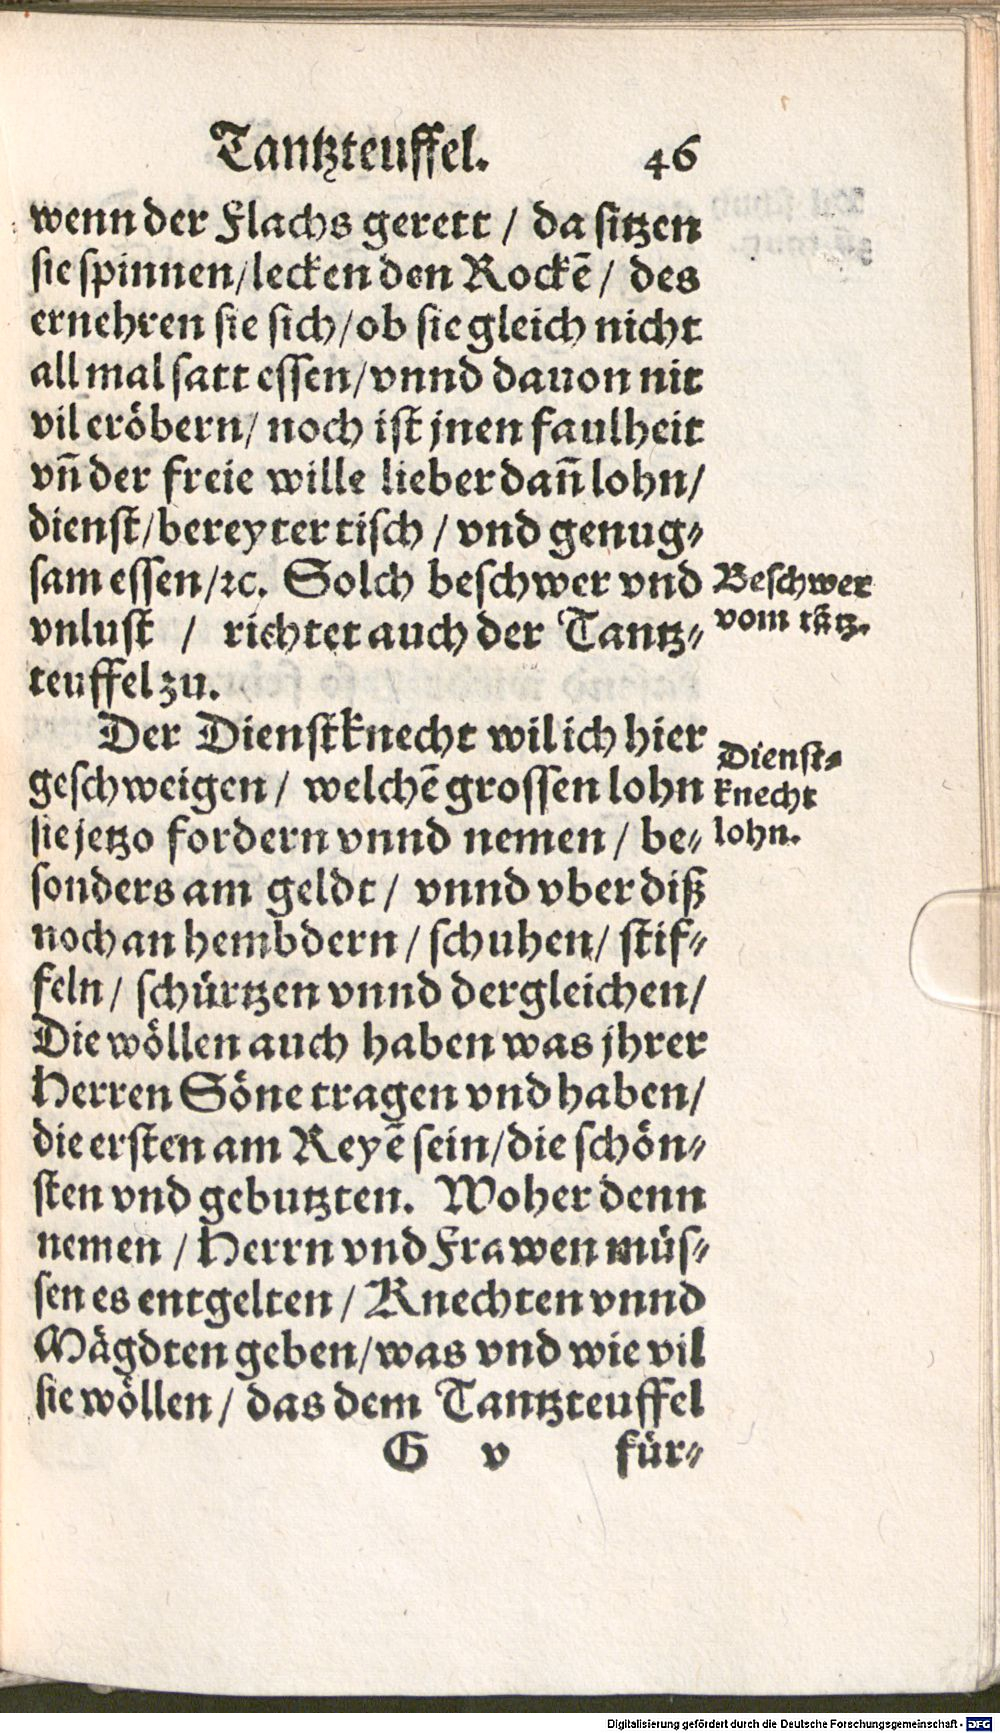 Tantzteuffel. 46
wenn der Flachs gerett / da sitzen
sie spinnen / lecken den Rockē / des
ernehren sie sich / ob sie gleich nicht
all mal satt essen / vnnd dauon nit
vil eröbern / noch ist jnen faulheit
vn̄ der freie wille lieber dan̄ lohn /
dienst / bereyter tisch / vnd genug⸗
sam essen / ꝛc. Solch beschwer vnd
vnlust / richtet auch der Tantz⸗
teuffel zu.
Beschwer
vom tātz.
Der Dienstknecht wil ich hier
geschweigen / welchē grossen lohn
sie jetzo fordern vnnd nemen / be⸗
sonders am geldt / vnnd vber diß
noch an hembdern / schuhen / stif⸗
feln / schürtzen vnnd dergleichen /
Die wöllen auch haben was jhrer
Herren Söne tragen vnd haben /
die ersten am Reyē sein / die schön⸗
sten vnd gebutzten. Woher denn
nemen / Herrn vnd Frawen müs⸗
sen es entgelten / Knechten vnnd
Mägdten geben / was vnd wie vil
sie wöllen / das dem Tantzteuffel
Dienst⸗
knecht
lohn.
G v für⸗
Digitalisierung gefördert durch die Deutsche Forschungsgemeinschaft - DFG